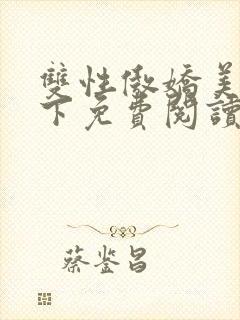 雙性傲嬌美
下免費閱讀
蔡鉴昌